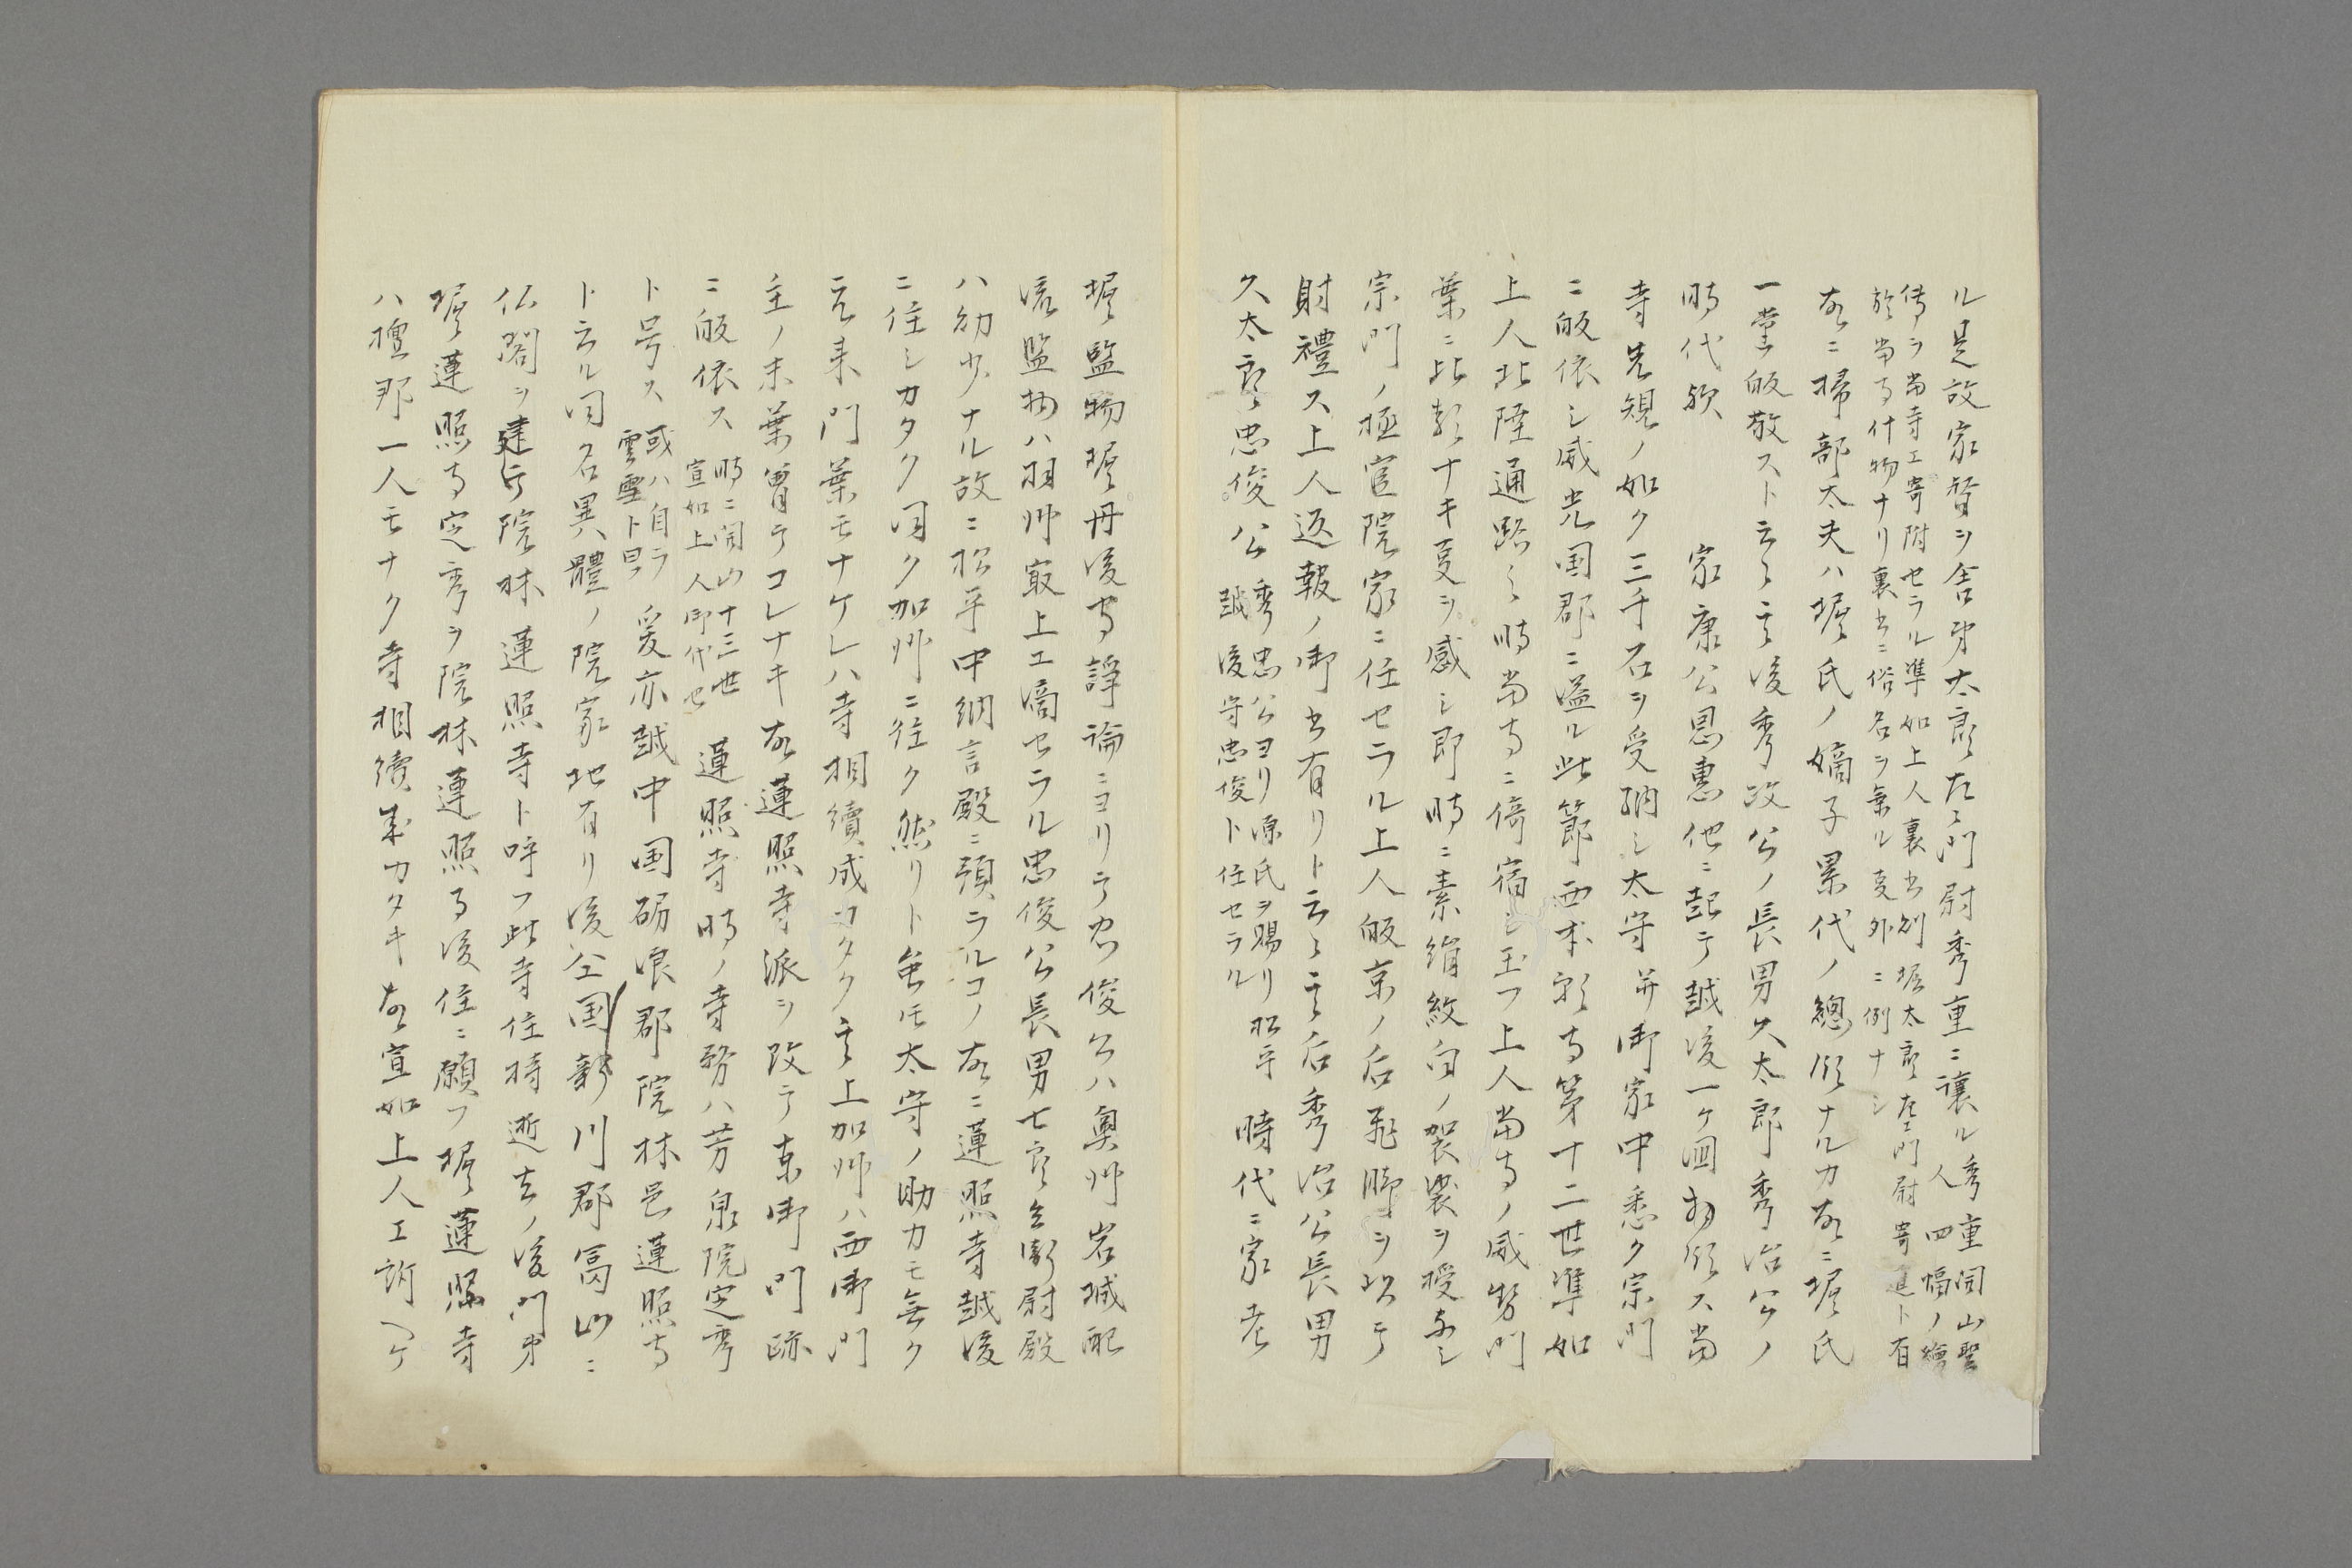 ル是故家督ヲ舎弟太郎左ヱ門尉秀重ニ讓ル秀重開山聖
人四幅ノ繪
傳ヲ當寺エ寄附セラル準如上人裏書別堀太郎左ヱ門尉寄進ト有
於當寺什物ナリ裏書ニ俗名ヲ乗ル叓外ニ例ナシ
故ニ掃部太夫ハ堀氏ノ嫡子累代ノ總領ナルカ故ニ堀氏
一黨皈敬スト云々其後秀政公ノ長男久太郎秀治公ノ
時代欤 家康公恩惠他ニ越テ越後一ケ國拝領ス當
寺先規ノ如ク三千石ヲ受納シ太守并御家中悉ク宗門
ニ皈依シ威光国郡ニ溢ル此節西本願寺第十二世準如
上人北陸通路之時當寺ニ倚宿シ玉フ上人當寺ノ威勢門
葉ニ比類ナキ叓ヲ感シ即時ニ素絹紋白ノ袈裟ヲ授与シ
宗門ノ極官院家ニ任セラル上人皈京ノ后飛脚ヲ以テ
財禮ス上人返報ノ御書有リト云々其后秀治公長男
久太郎忠俊公 秀忠公ヨリ源氏ヲ賜リ松平
越後守忠俊ト任セラル 時代ニ家老
堀監物堀丹後守諍論ニヨリテ忠俊公ハ奥州岩城配
流監物ハ羽州最上エ謫セラル忠俊公長男七郎兵衛尉殿
ハ幼少ナル故ニ松平中納言殿ニ預ラルコノ故ニ蓮照寺越後
ニ住シカタク同ク加州ニ往ク然リト雖モ太守ノ助力モ無ク
元来門葉モナケレハ寺相續成リカタク其上加州ハ西御門
主ノ末葉曽テコレナキ故蓮照寺派ヲ改テ東御門跡
ニ皈依ス 時ニ開山十三世
宣如上人御代也 蓮照寺時ノ寺務ハ芳泉院定秀
ト号ス 或ハ自ラ
雲霊ト曰 爰亦越中国砺浪郡院林邑蓮照寺
ト云ル同名異體ノ院家地有リ後仝国新川郡冨山ニ
仏閣ヲ建テ院林蓮照寺ト呼フ此寺住持逝去ノ後門弟
堀蓮照寺定秀ヲ院林蓮照寺後住ニ願フ堀蓮照寺
ハ檀那一人モナク寺相續業カタキ故宣如上人エ訴ヘケ